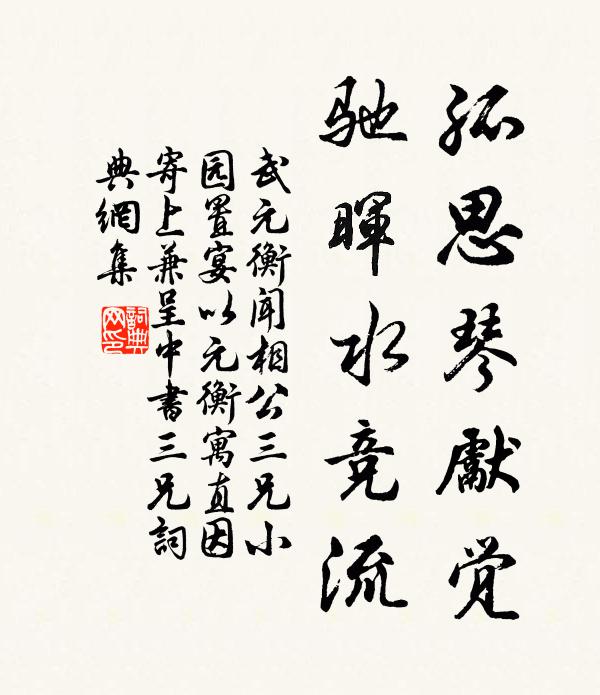 孤思琴獻觉
驰暉水竞流
武元衡闻相公三兄小
园置宴以元衡寓直因
寄上兼呈中書三兄詞
典網集
詞典
网印